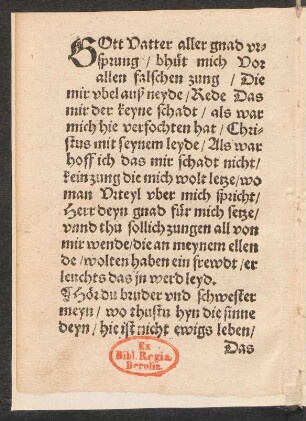 GOtt Vatter aller gnad vr-
sprung / bhüt mich Vor
allen falschen zung / Die
mir vbel auß neyde / Rede Das
mir der keyne schadt / als war
mich hie verfochten hat / Chri-
stus mit seynem leyde / Als war
hoff ich das mir schadt nicht /
kein zung die mich wolt letze / wo
man Vrteyl vber mich spricht /
Herr deyn gnad für mich setze /
vnnd thu sollich zungen all von
mir wende / die an meynem ellen
de / wolten haben ein frewdt / er
leuchts das jn werd leyd.
¶ Hör du bruder vnd schwester
meyn / wo thustu hyn die sinne
deyn / hie ist nicht ewigs leben /
Das
Ex
Bibl. Regia
Berolin.